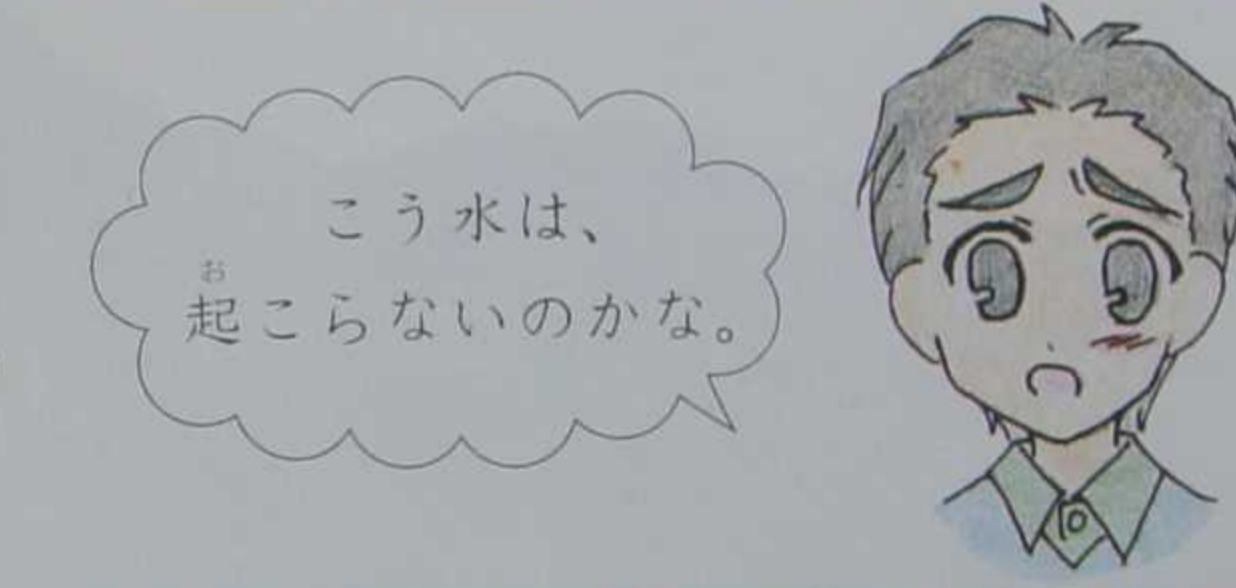 こう水は、
起こらないのかな。
お